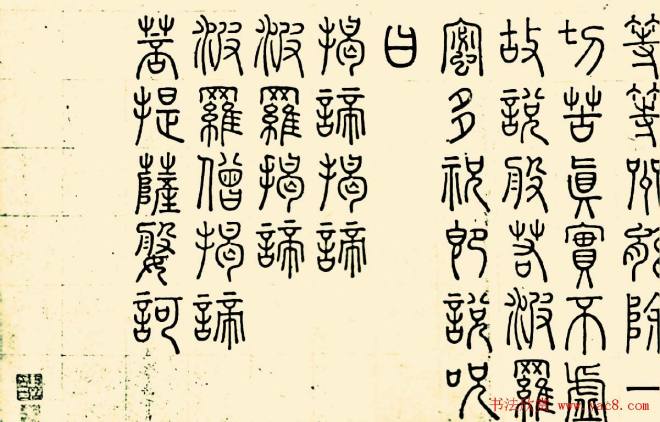 等等咒能除一
切苦眞實不虛
故說般若波羅
蜜多祝即說呪
曰
揭諦揭諦
波羅揭諦
波羅僧揭諦
菩提薩婆訶
书法欣赏 www.yac8.com